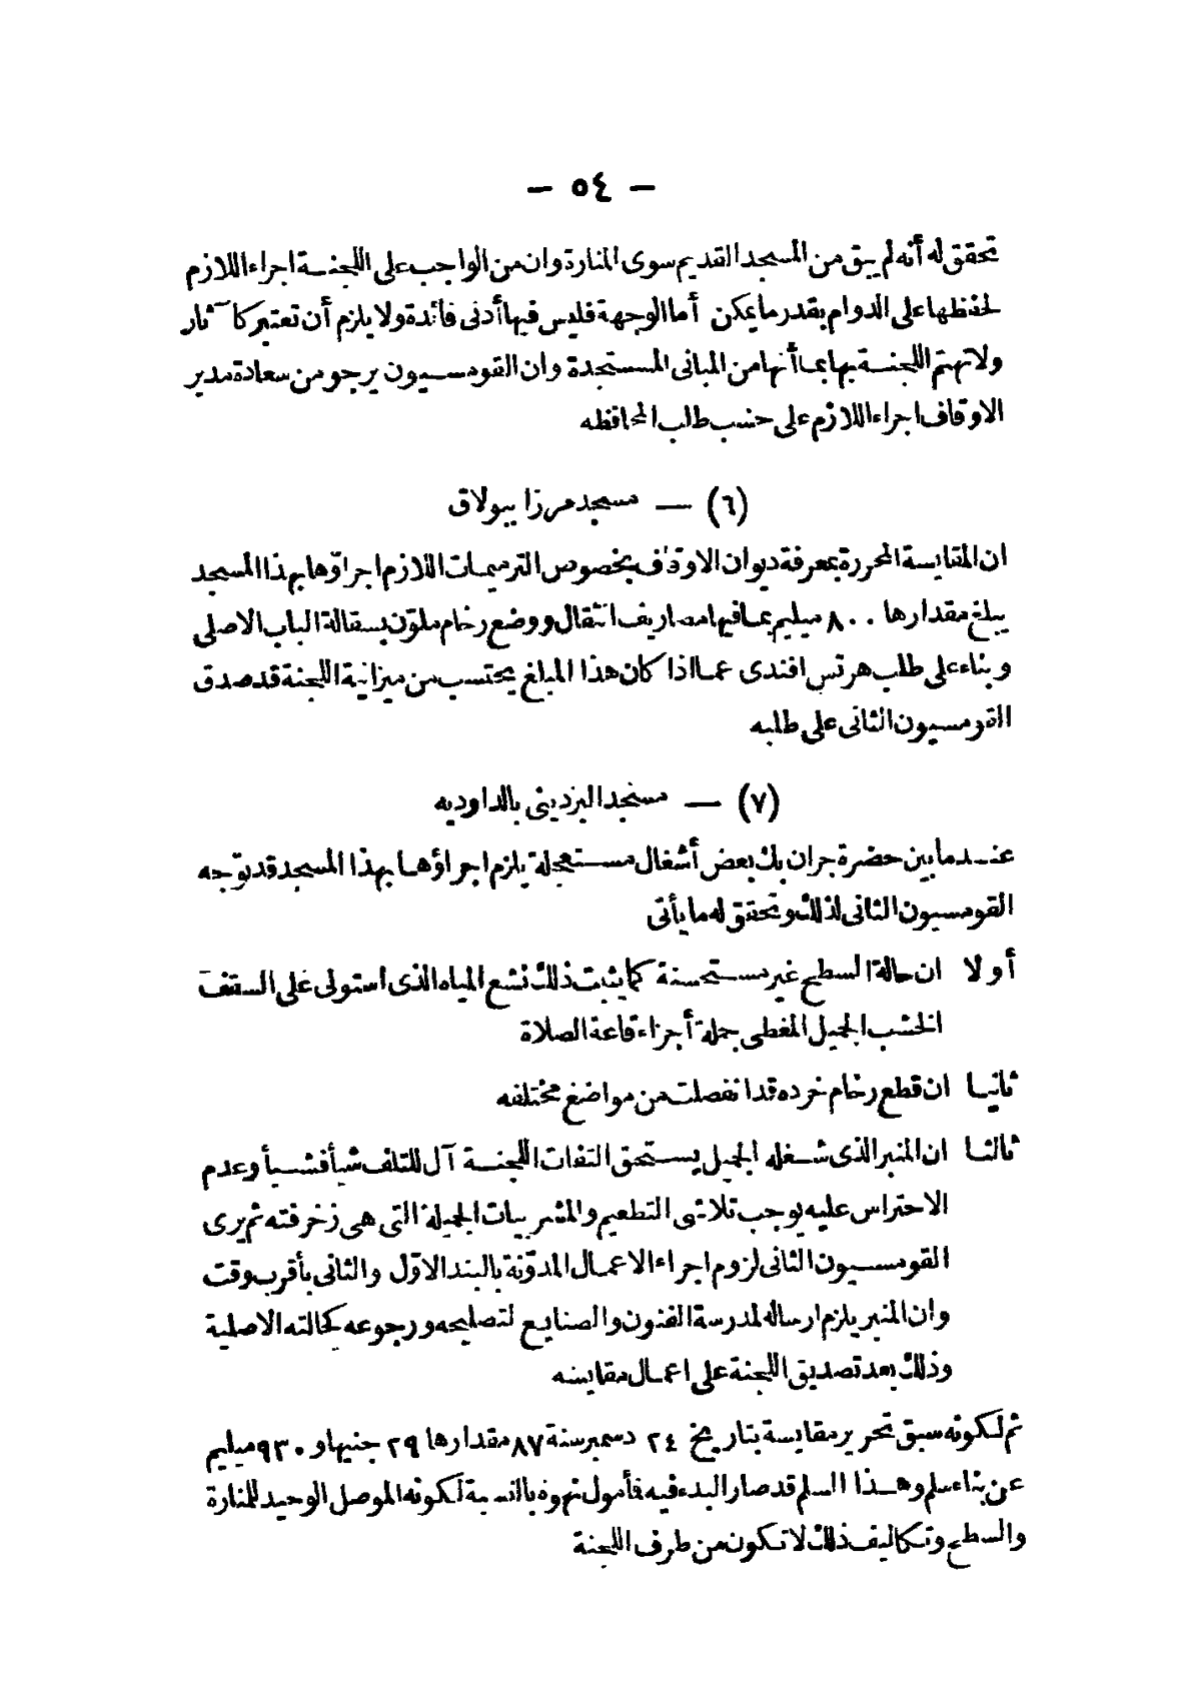 — ٥٤ —
تحقق له أنه لم يبق من المسجد القديم سوى المنارة وان من الواجب على اللجنة اجراء اللازم
لحفظها على الدوام بقدر ما يمكن أما الوجهة فليس فيها أدنى فائدة ولا يلزم أن تعتبر كآثار
ولا تهتم اللجنة بها بما أنها من المبانى المستجدة وان القومسيون يرجو من سعادة مدير
الاوقاف اجراء اللازم على حسب طلب المحافظه
(٦) — مسجد مرزا ببولاق
ان المقايسة المحررة بمعرفة ديوان الاوقاف بخصوص الترميمات اللازم اجراؤها بهذا المسجد
يبلغ مقدارها ٨٠٠ ميليم بما فيها مصاريف انتقال ووضع رخام ملوّن بسقالة الباب الاصلى
وبناء على طلب هرتس افندى عما اذا كان هذا المبلغ يحتسب من ميزانية اللجنة قد صدق
القومسيون الثانى على طلبه
(٧) — مسجد البزدينى بالداوديه
عندما بين حضرة جران بك بعض أشغال مستعجلة يلزم اجراؤها بهذا المسجد قد توّجه
القومسيون الثانى لذلك وتحقق له ما يأتى
أولا ان حالة السطح غير مستحسنة كما يثبت ذلك نشع المياه الذى استولى على السقف
الخشب الجميل المغطى جملة أجزاء قاعة الصلاة
ثانيا ان قطع رخام خرده قد انفصلت من مواضع مختلفه
ثالثا ان المنبر الذى شغله الجميل يستحق التفات اللجنة آل للتلف شيأ فشيأ وعدم
الاحتراس عليه يوجب تلاشى التطعيم والمشربيات الجميلة التى هى زخرفته ثم يرى
القومسيون الثانى لزوم اجراء الاعمال المدوّنة بالبند الاوّل والثانى بأقرب وقت
وان المنبر يلزم ارساله لمدرسة الفنون والصنايع لتصليحه ورجوعه لحالته الاصلية
وذلك بعد تصديق اللجنة على اعمال مقايسه
ثم لكونه سبق تحرير مقايسة بتاريخ ٢٤ دسمبر سنة ٨٧ مقدارها ٢٩ جنيها و ٩٣٠ ميليم
عن بناء سلم وهذا السلم قد صار البدء فيه فأمول نهوه بالنسبة لكونه الموصل الوحيد للمنارة
والسطح وتكاليف ذلك لا تكون من طرف اللجنة